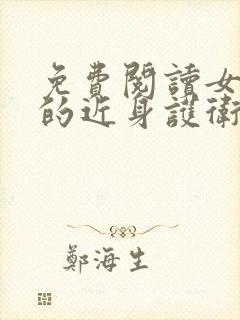 免費閱讀女
的近身護衛
鄭海生